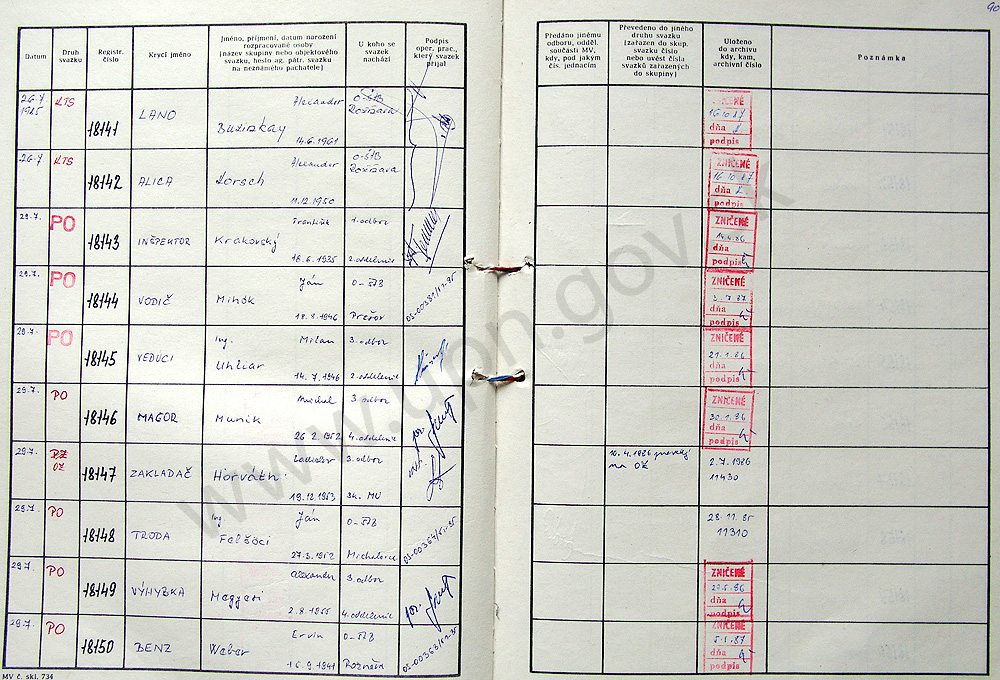 90
Datum
Druh svazku
Registr. číslo
Krycí jméno
Jméno, příjmení, datum narození rozpracované osoby (název skupiny nebo objektového svazku, heslo ag. pátr. svazku na neznámého pachatele)
U koho se svazek nachází
Podpis oper. prac., který svazek přijal
Předáno jinému odboru, odděl. součásti MV, kdy, pod jakým čís. jednacím
Převedeno do jiného druhu svazku (zařazen do skup. svazku číslo nebo uvést čísla svazků zařazených do skupiny)
Uloženo do archivu kdy, kam, archivní číslo
Poznámka
26.7 1985 KTS 18141 LANO Alexander 14.6.1961 O-ŠtB Rožňava ZNIČENÉ 16.10.87 dňa podpis
26.7 KTS 18142 ALICA Alexander Korsch 11.12.1950 O-ŠtB Rožňava ZNIČENÉ 16.10.87 dňa podpis
29.7. PO 18143 INŠPEKTOR František Krakovský 18.6.1935 1. odbor 2. oddelenie ZNIČENÉ 14.4.86 dňa podpis
29.7. PO 18144 VODIČ Ján Mihók 18.8.1946 O-ŠtB Prešov ZNIČENÉ 3.7.87 dňa podpis
29.7. PO 18145 VEDUCI Ing. Milan Uhliar 14.7.1946 3. odbor 2. oddelenie ZNIČENÉ 21.1.86 dňa podpis
29.7. PO 18146 MAGOR Michal Munik 26.2.1952 3. odbor 4. oddelenie ZNIČENÉ 30.1.86 dňa podpis
29.7. OZ 18147 ZAKLADAČ Ladislav Horváth 19.12.1953 3. odbor 10.4.1986 na OZ 2.7.1986 11430
29.7. PO 18148 TRODA Ing. Ján Felšöci 27.3.1952 O-ŠtB Michalovce 28.11.85 11310
29.7. PO 18149 VÝHYBKA Alexander Magyari 2.8.1955 3. odbor 4. oddelenie ZNIČENÉ dňa podpis
29.7. PO 18150 BENZ Ervin Weber 16.9.1941 O-ŠtB Rožňava ZNIČENÉ 5.1.87 dňa podpis
MV č. skl. 734
www.upn.gov.sk